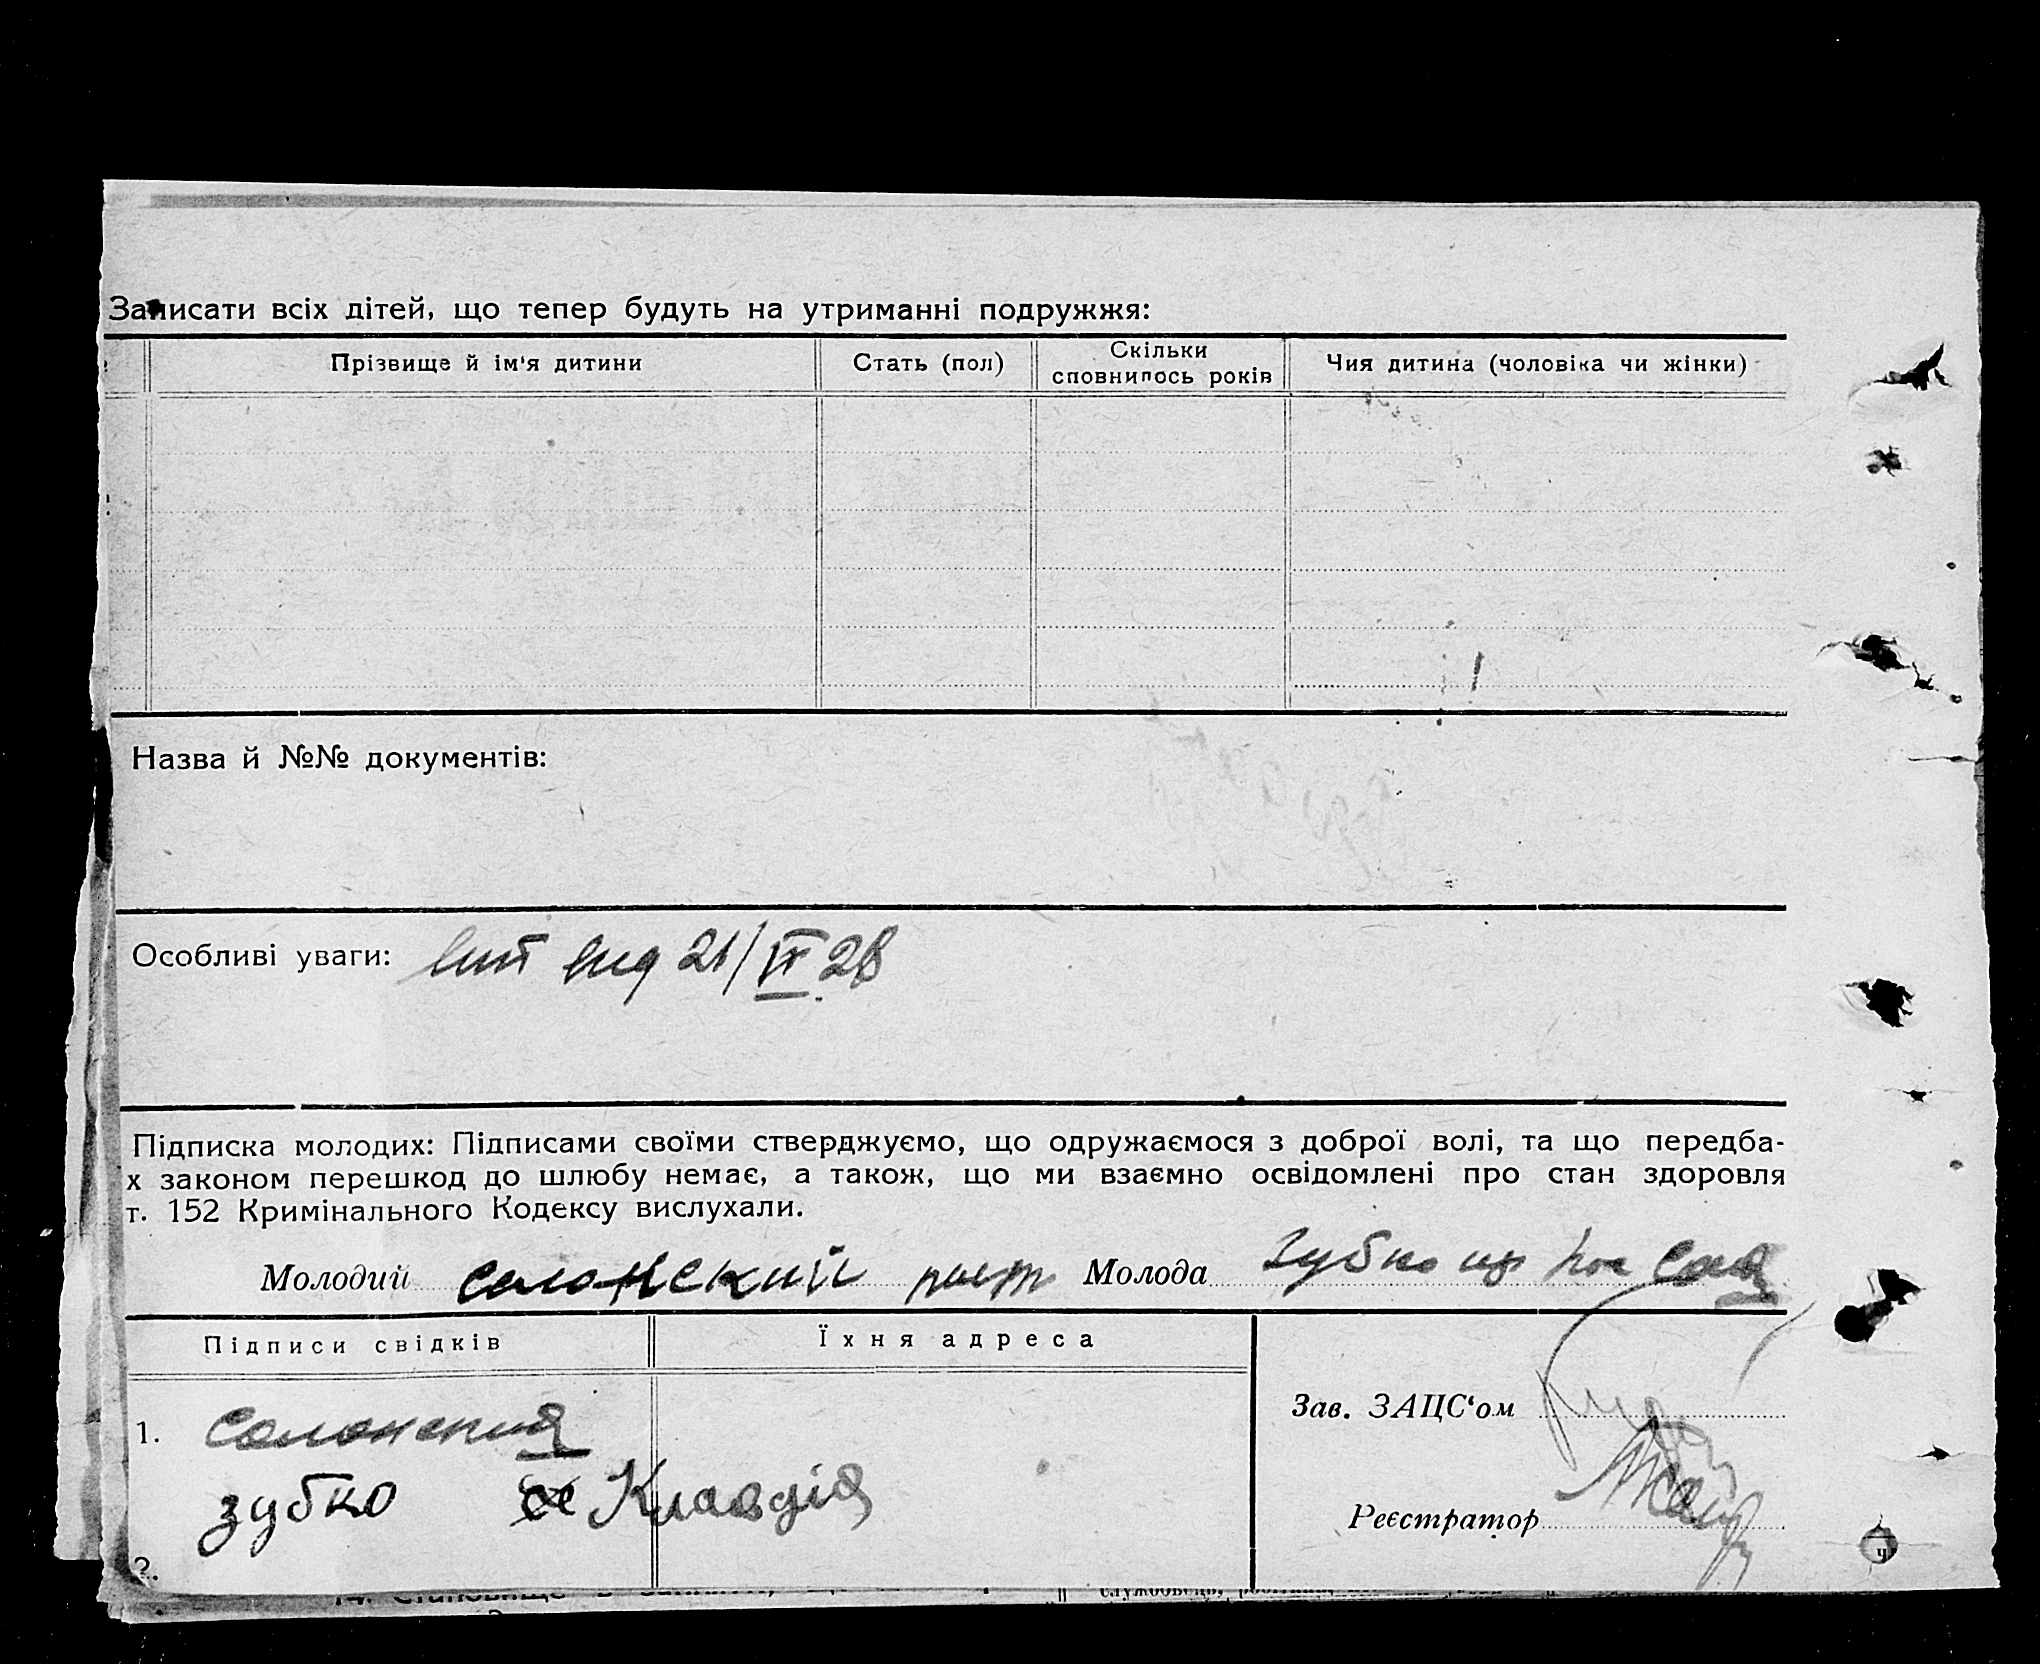 Записати всіх дітей, що тепер будуть на утриманні подружжя:
Прізвище й ім'я дитини
Стать (пол)
Скільки сповнилось років
Чия дитина (чоловіка чи жінки)
Назва й №№ документів:
Особливі уваги: 21/ 28
Підписка молодих: Підписами своїми стверджуємо, що одружаємося з доброї волі, та що передба-
х законом перешкод до шлюбу немає, а також, що ми взаємно освідомлені про стан здоровля
т. 152 Кримінального Кодексу вислухали.
Молодий Солонский Молода Зубко
Підписи свідків
Їхня адреса
1. Солонский
зубко Клавдія
2.
Зав. ЗАЦС'ом
Реєстратор